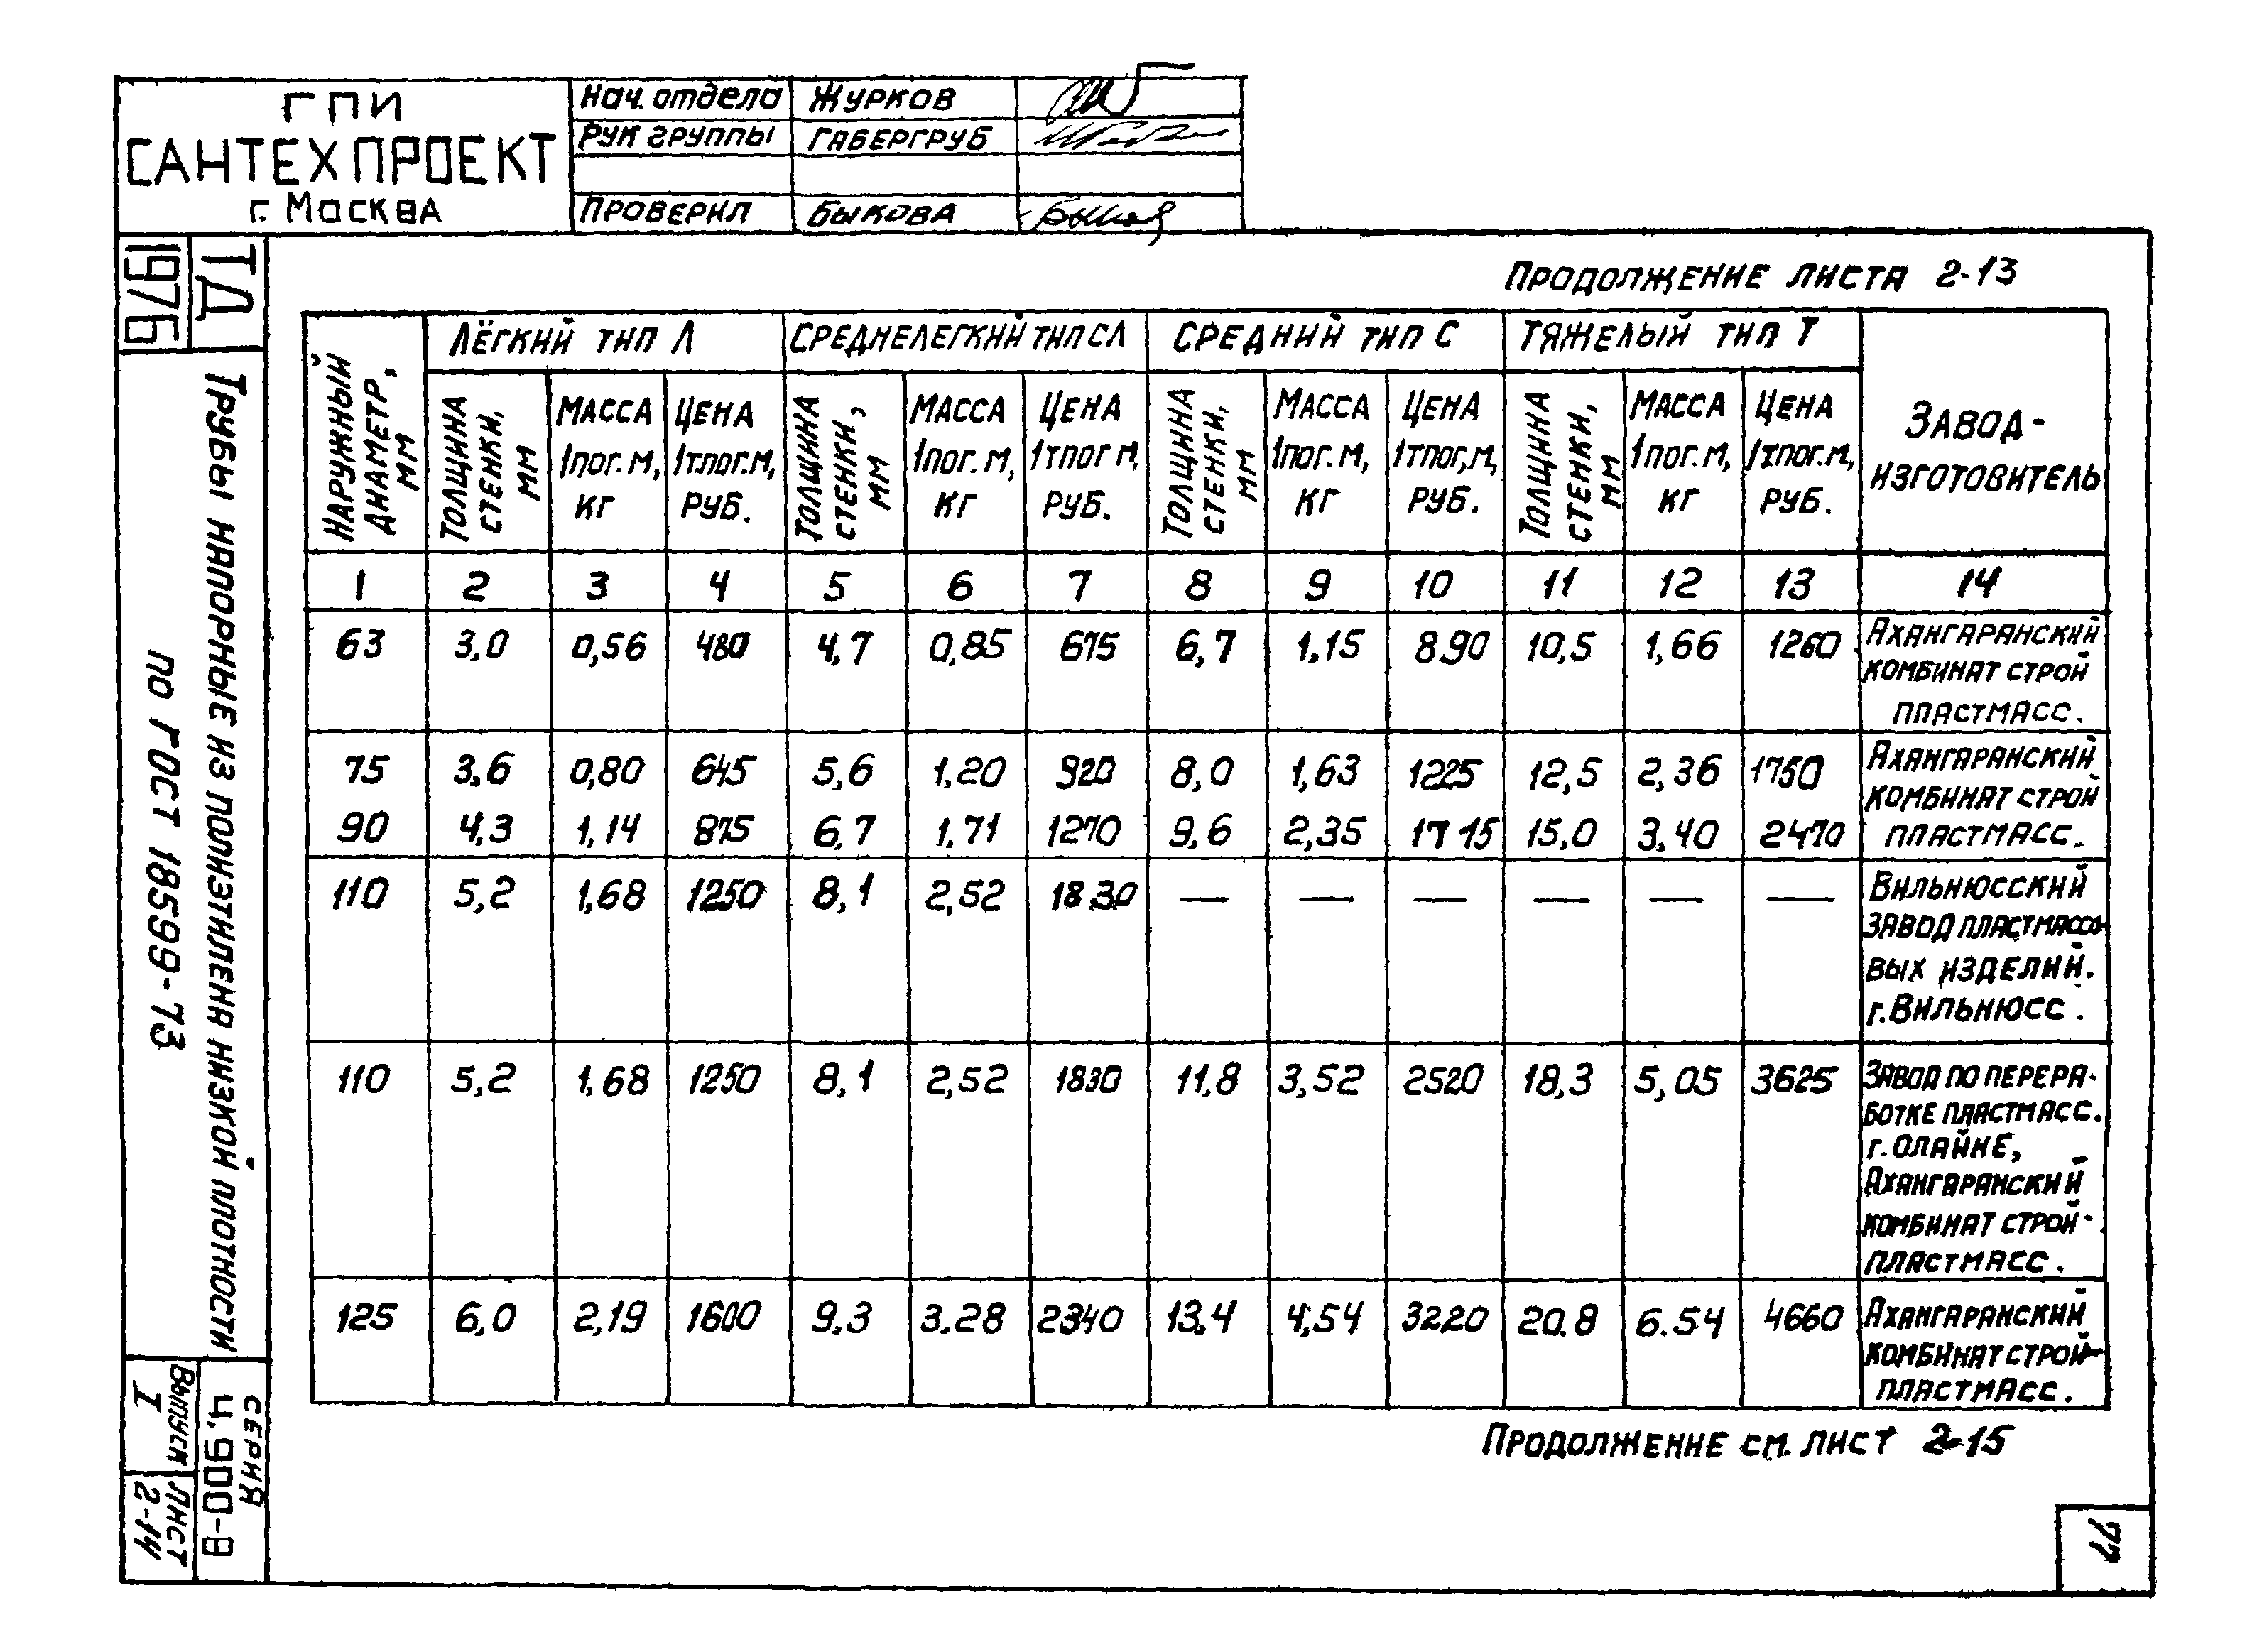 ГПИ
САНТЕХПРОЕКТ
г. Москва
Нач. отдела Журков
Рук группы Габергруб
Проверил Быкова
ТД
1976
Трубы напорные из полиэтилена низкой плотности
по ГОСТ 18599-73
Серия
4.900-8
Выпуск
I
Лист
2-14
Продолжение листа 2-13
Наружный диаметр, мм
Лёгкий тип Л
Среднелегкий тип СЛ
Средний тип С
Тяжелый тип Т
Завод-
изготовитель
Толщина стенки, мм
Масса 1пог. м, кг
Цена 1т.пог. м, руб.
Толщина стенки, мм
Масса 1пог. м, кг
Цена 1тпог м, руб.
Толщина стенки, мм
Масса 1пог. м, кг
Цена 1тпог, м, руб.
Толщина стенки, мм
Масса 1пог. м, кг
Цена 1тпог. м, руб.
1 2 3 4 5 6 7 8 9 10 11 12 13 14
63 3,0 0,56 480 4,7 0,85 675 6,7 1,15 890 10,5 1,66 1260 Ахангаранский
комбинат строй
пластмасс.
75 3,6 0,80 645 5,6 1,20 920 8,0 1,63 1225 12,5 2,36 1750 Ахангаранский
комбинат строй
90 4,3 1,14 875 6,7 1,71 1270 9,6 2,35 1715 15,0 3,40 2470 пластмасс.
110 5,2 1,68 1250 8,1 2,52 1830 — — — — — — Вильнюсский
завод пластмассо-
вых изделий.
г. Вильнюсс.
110 5,2 1,68 1250 8,1 2,52 1830 11,8 3,52 2520 18,3 5,05 3625 Завод по перера-
ботке пластмасс.
г. Олайне,
Ахангаранский
комбинат строй-
пластмасс.
125 6,0 2,19 1600 9,3 3.28 2340 13,4 4,54 3220 20.8 6.54 4660 Ахангаранский
комбинат строй-
пластмасс.
Продолжение см. лист 2-15
77